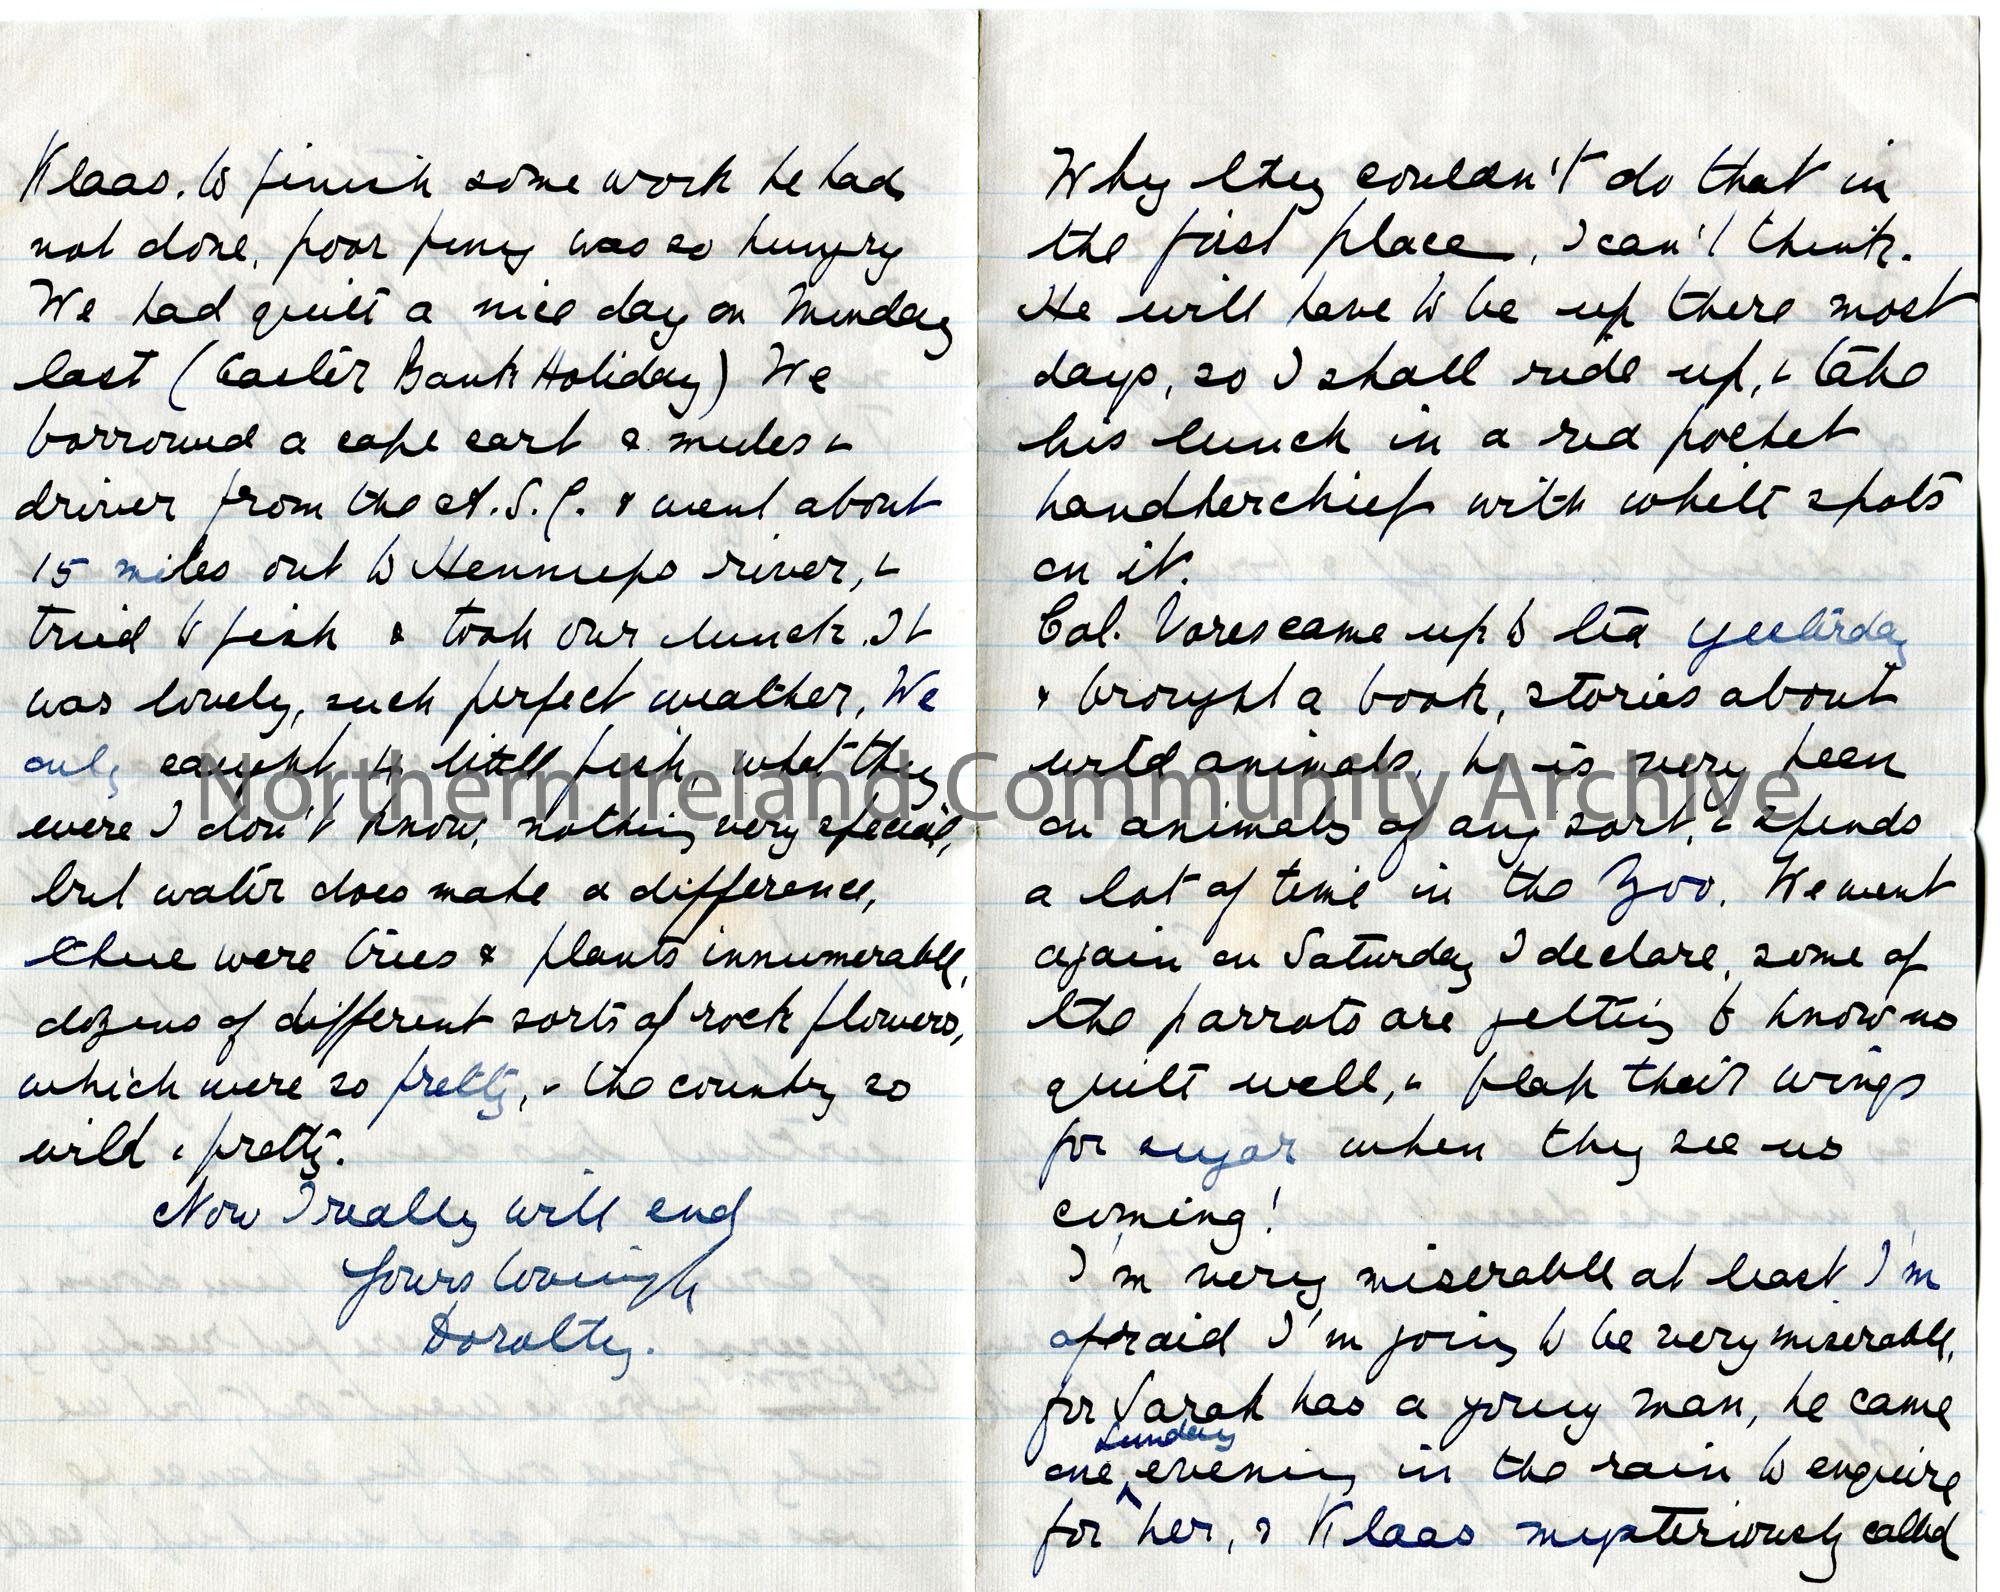 Klaas. to finish some work he had
not done, poor pony was so hungry
We had quite a nice day on Monday
last (Easter Bank Holiday) We
borrowed a cape cart & mules &
driver from the A.S.C. & went about
15 miles out to Hennieps river, &
tried to fish & took our lunch. It
was lovely, such perfect weather, We
only caught 4 little fish, what they
were I don't know, nothing very special,
but water does make a difference,
there were trees & plants innumerable,
dozens of different sorts of rock flowers,
which were so pretty, & the country so
wild & pretty.
Now I really will end
Yours lovingly
Dorothy.
Why they couldn't do that in
the first place, I can't think.
He will have to be up there most
days, so I shall ride up, & take
his lunch in a red pocket
handkerchief with white spots
on it.
Col. Vores came up to tea yesterday
& brought a book, stories about
wild animals, he is very keen
on animals of any sort, & spends
a lot of time in the Zoo. We went
again on Saturday I declare, some of
the parrots are getting to know us
quite well, & flap their wings
for sugar when they see us
coming!
I'm very miserable at least I'm
afraid I'm going to be very miserable,
for Sarah has a young man, he came
one Sunday evening in the rain to enquire
for her, & Klaas mysteriously called
Northern Ireland Community Archive